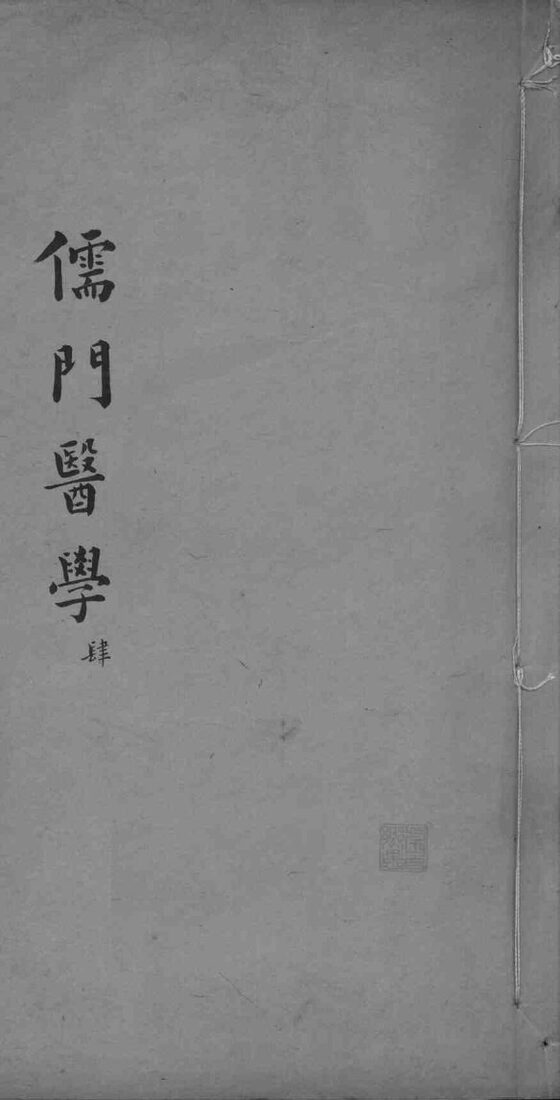 儒門醫學
肆